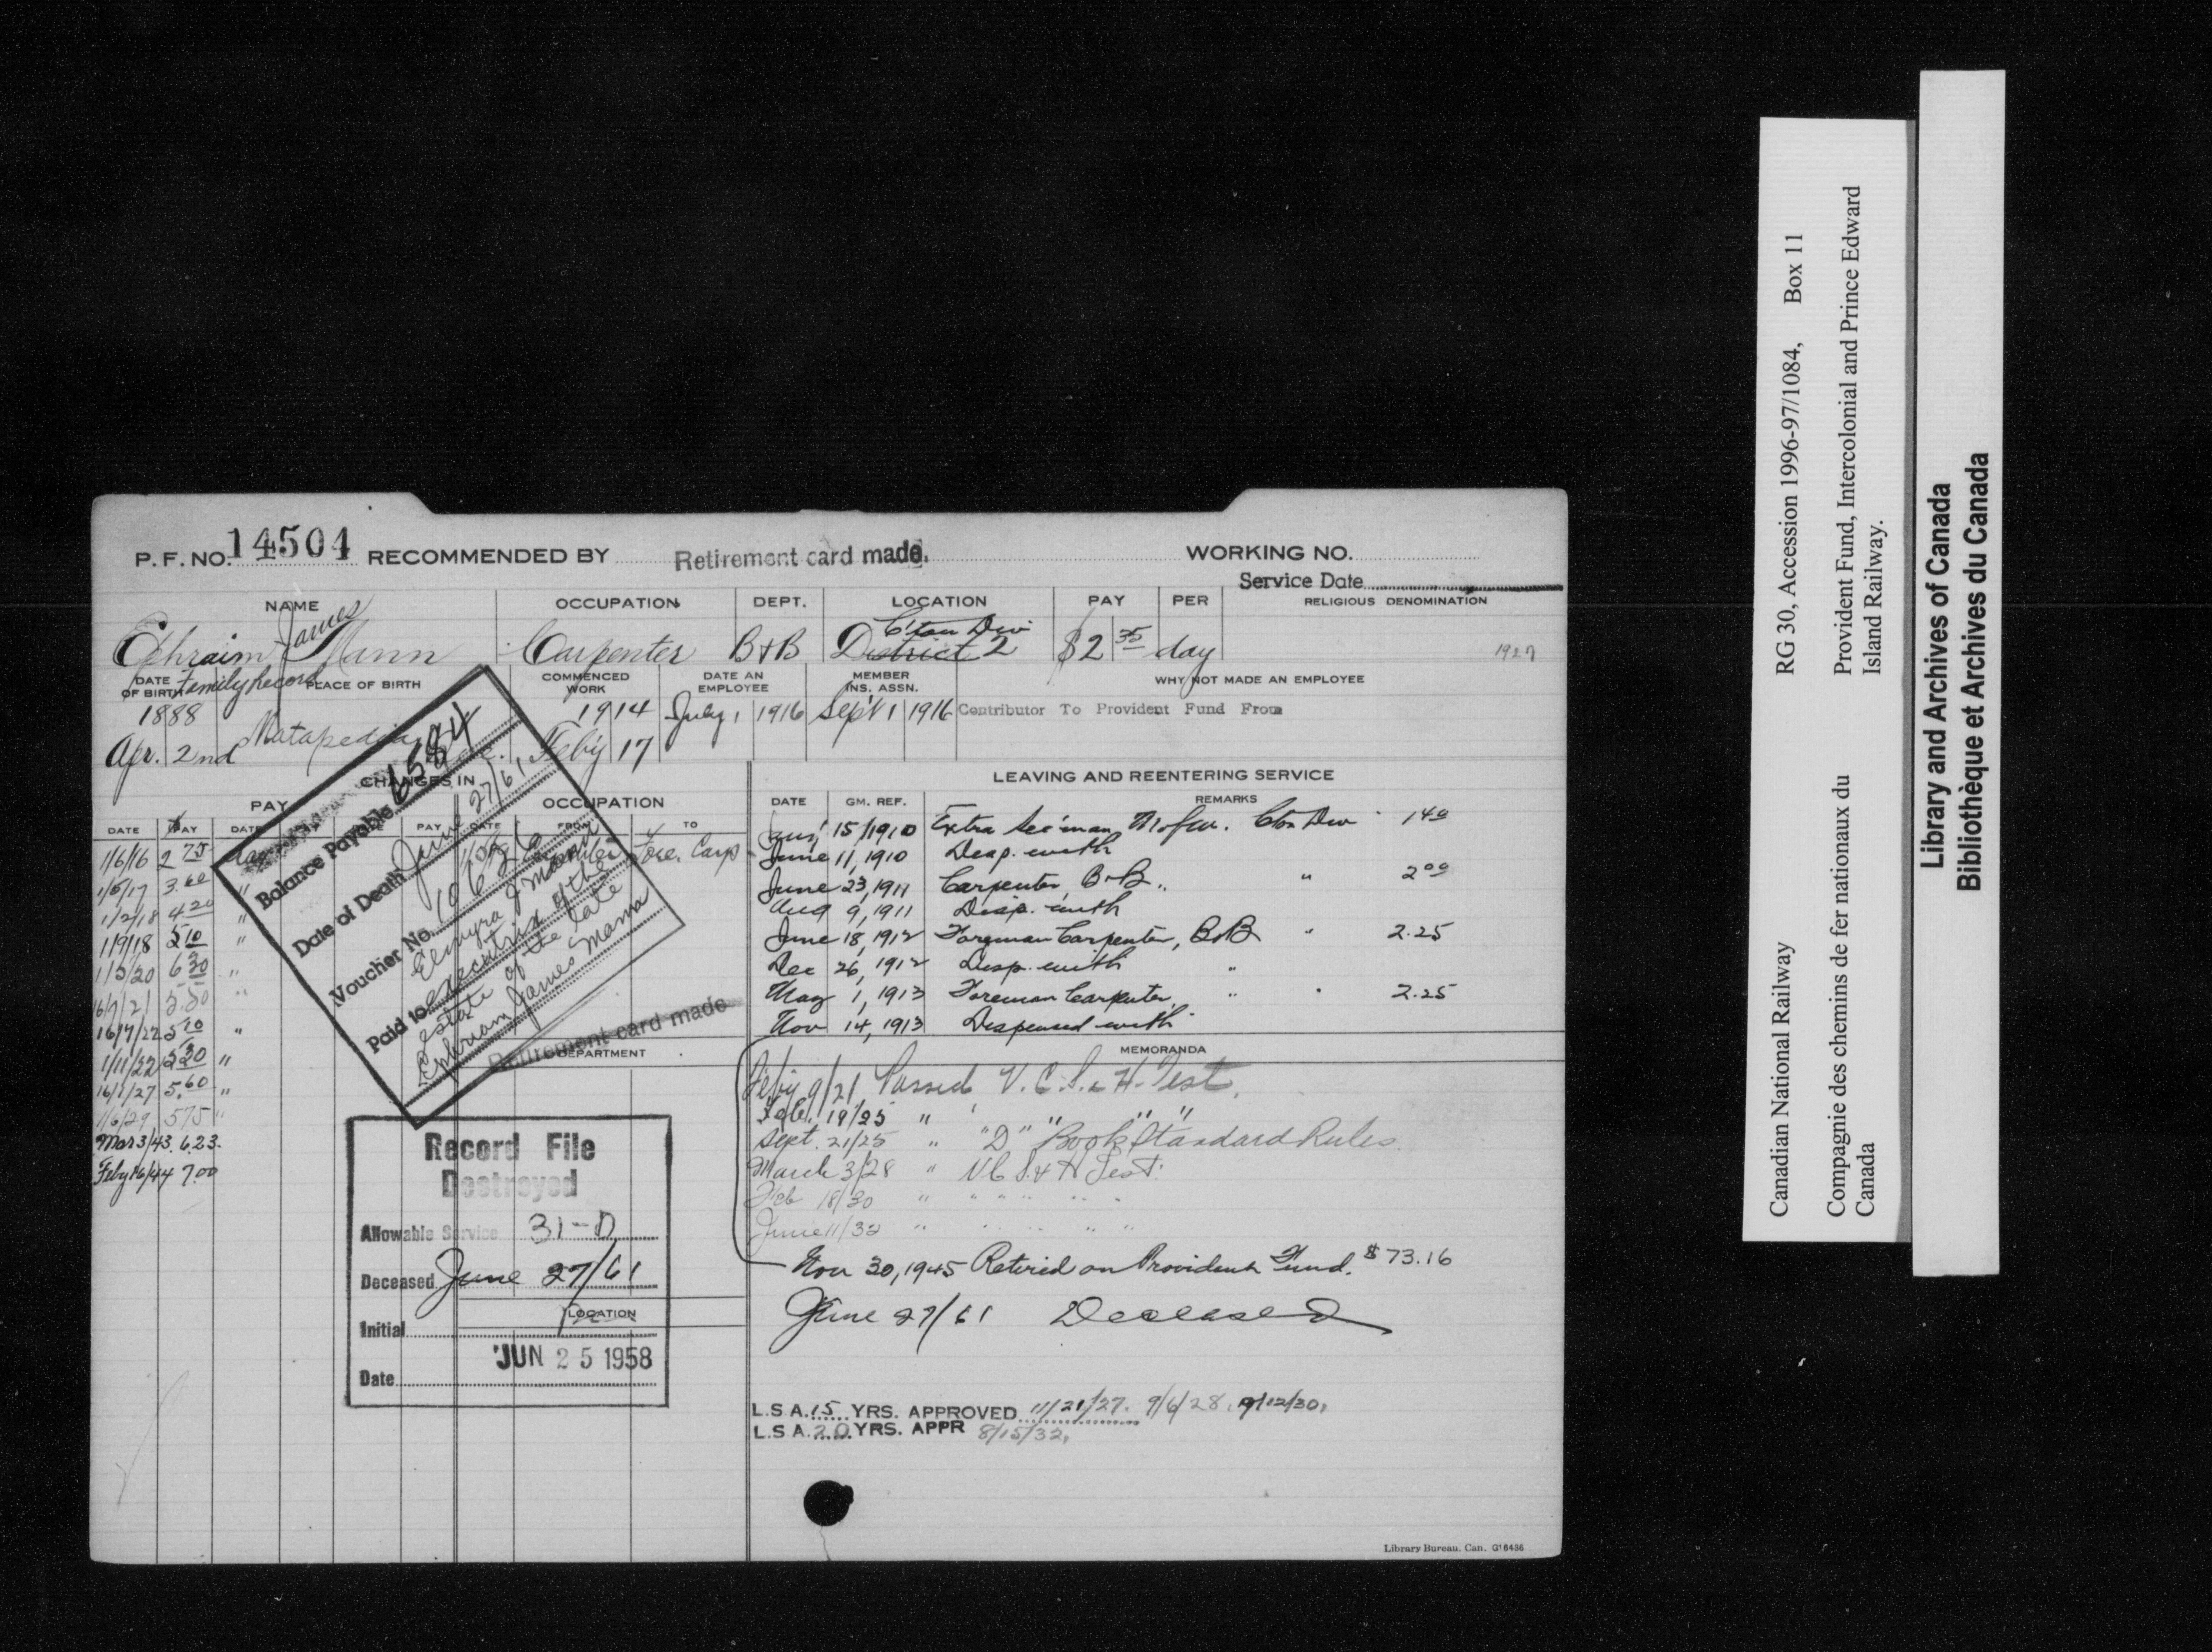 P. F. NO. 14504 RECOMMENDED BY Retirement card made. WORKING NO.
Service Date
NAME OCCUPATION DEPT. LOCATION PAY PER RELIGIOUS DENOMINATION
Ephraim James Mann Carpenter B+B C'ton Div District 2 $2 35 day 1927
DATE OF BIRTH Family Record PLACE OF BIRTH COMMENCED WORK DATE AN EMPLOYEE MEMBER INS. ASSN. WHY NOT MADE AN EMPLOYEE
1888 1914 July 1 1916 Sept 1 1916 Contributor To Provident Fund From
Apr. 2nd Matapedia Feby 17
CHANGES IN
PAY OCCUPATION
DATE PAY DATE PAY DATE FROM TO
1/6/16 2 75 day Fore. Carp
1/5/17 3.60 "
1/2/18 4 20 "
1/9/18 5 10 "
1/5/20 6 30 "
16/7/21 "
16/7/22 5 10 "
1/11/22 5 30 "
16/1/27 5.60 "
1/6/29 5 75 "
Mar 3/43. 6.23.
Feby 16/44 7.00
Balance Payable 6584
Date of Death June 27/61
Voucher No.
Paid to Elmyra J Mann
executrix of the
estate of the late
Ephriam James Mann
Retirement card made
DEPARTMENT
Record File
Destroyed
Allowable Service 31-0
Deceased June 27/61
LOCATION
Initial
JUN 25 1958
Date
LEAVING AND REENTERING SERVICE
DATE GM. REF. REMARKS
15/1910 Extra Sec'man M. of W. Cton Div 1 40
June 11, 1910 Desp. with
June 23, 1911 Carpenter B+B. " 2 00
Aug 9, 1911 Disp. with
June 18, 1912 Foreman Carpenter, B&B " 2.25
Dec 26, 1912 Disp. with "
May 1, 1913 Foreman Carpenter, " " 2.25
Nov 14, 1913 Dispensed with
MEMORANDA
Feby 9/21 Passed V. C. S. & H. Test.
Feb. 19/25 " " " "
Sept. 21/25 " "D" Book Standard Rules.
March 3/28 " V C S. & H Test.
Feb 18/30 " " " " " "
June 11/32 " " " " "
Nov 30, 1945 Retired on Provident Fund. $73.16
June 27/61 Deceased
L.S.A. 15 YRS. APPROVED 11/21/27. 9/6/28. 9/12/30.
L.S.A. 20 YRS. APPR 8/15/32.
Library Bureau. Can. G16486
Canadian National Railway RG 30, Accession 1996-97/1084, Box 11
Compagnie des chemins de fer nationaux du Canada Provident Fund, Intercolonial and Prince Edward Island Railway.
Library and Archives of Canada
Bibliothèque et Archives du Canada